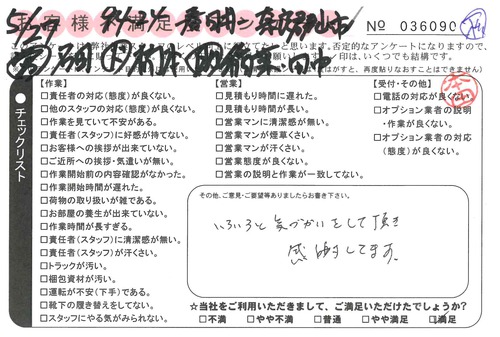 お客様満足
No 036090
このアンケートは弊社
否定的なアンケートになりますので、
印は、いくつでも結構です。
はがすと、再度貼りなおすことはできません)
チェックリスト
【作業】
□責任者の対応(態度)が良くない。
□他のスタッフの対応(態度)が良くない。
□作業を見ていて不安がある。
□責任者(スタッフ)に好感が持てない。
□お客様への挨拶が出来ていない。
□ご近所への挨拶・気遣いが無い。
□作業開始前の内容確認がなかった。
□作業開始時間が遅れた。
□荷物の取り扱いが雑である。
□お部屋の養生が出来ていない。
□作業時間が長すぎる。
□責任者(スタッフ)に清潔感が無い。
□責任者(スタッフ)が汗くさい。
□トラックが汚い。
□梱包資材が汚い。
□運転が不安(下手)である。
□靴下の履き替えをしてない。
□スタッフにやる気がみられない。
【営業】
□見積もり時間に遅れた。
□見積もり時間が長い。
□営業マンに清潔感が無い。
□営業マンが煙草くさい。
□営業マンが汗くさい。
□営業態度が良くない。
□営業の説明と作業が一致してない。
【受付・その他】
□電話の対応が良くない
□オプション業者の説明
・作業が良くない。
□オプション業者の対応
(態度)が良くない。
その他、ご意見・ご要望等ありましたらお書き下さい。
いろいろと気づかいをして頂き
感謝してます。
☆当社をご利用いただきまして、ご満足いただけたでしょうか?
□不満 □やや不満 □普通 □やや満足 □満足